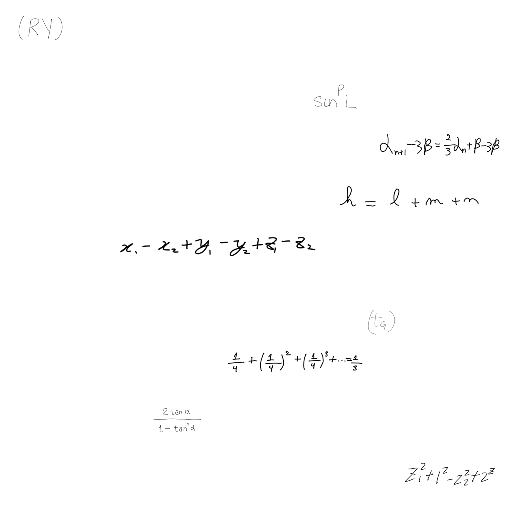 (RY)
sin^P L
α_{n+1} - 3β = \frac{2}{3}α_n + β - 3β
h = l + m + n
x_1 - x_2 + y_1 - y_2 + z_1 - z_2
\frac{1}{4} + (\frac{1}{4})^2 + (\frac{1}{4})^3 + ... = \frac{1}{3}
\frac{2 tan α}{1 - tan^2 α}
z_1^2 + 1^2 - z_2^2 + 2^2